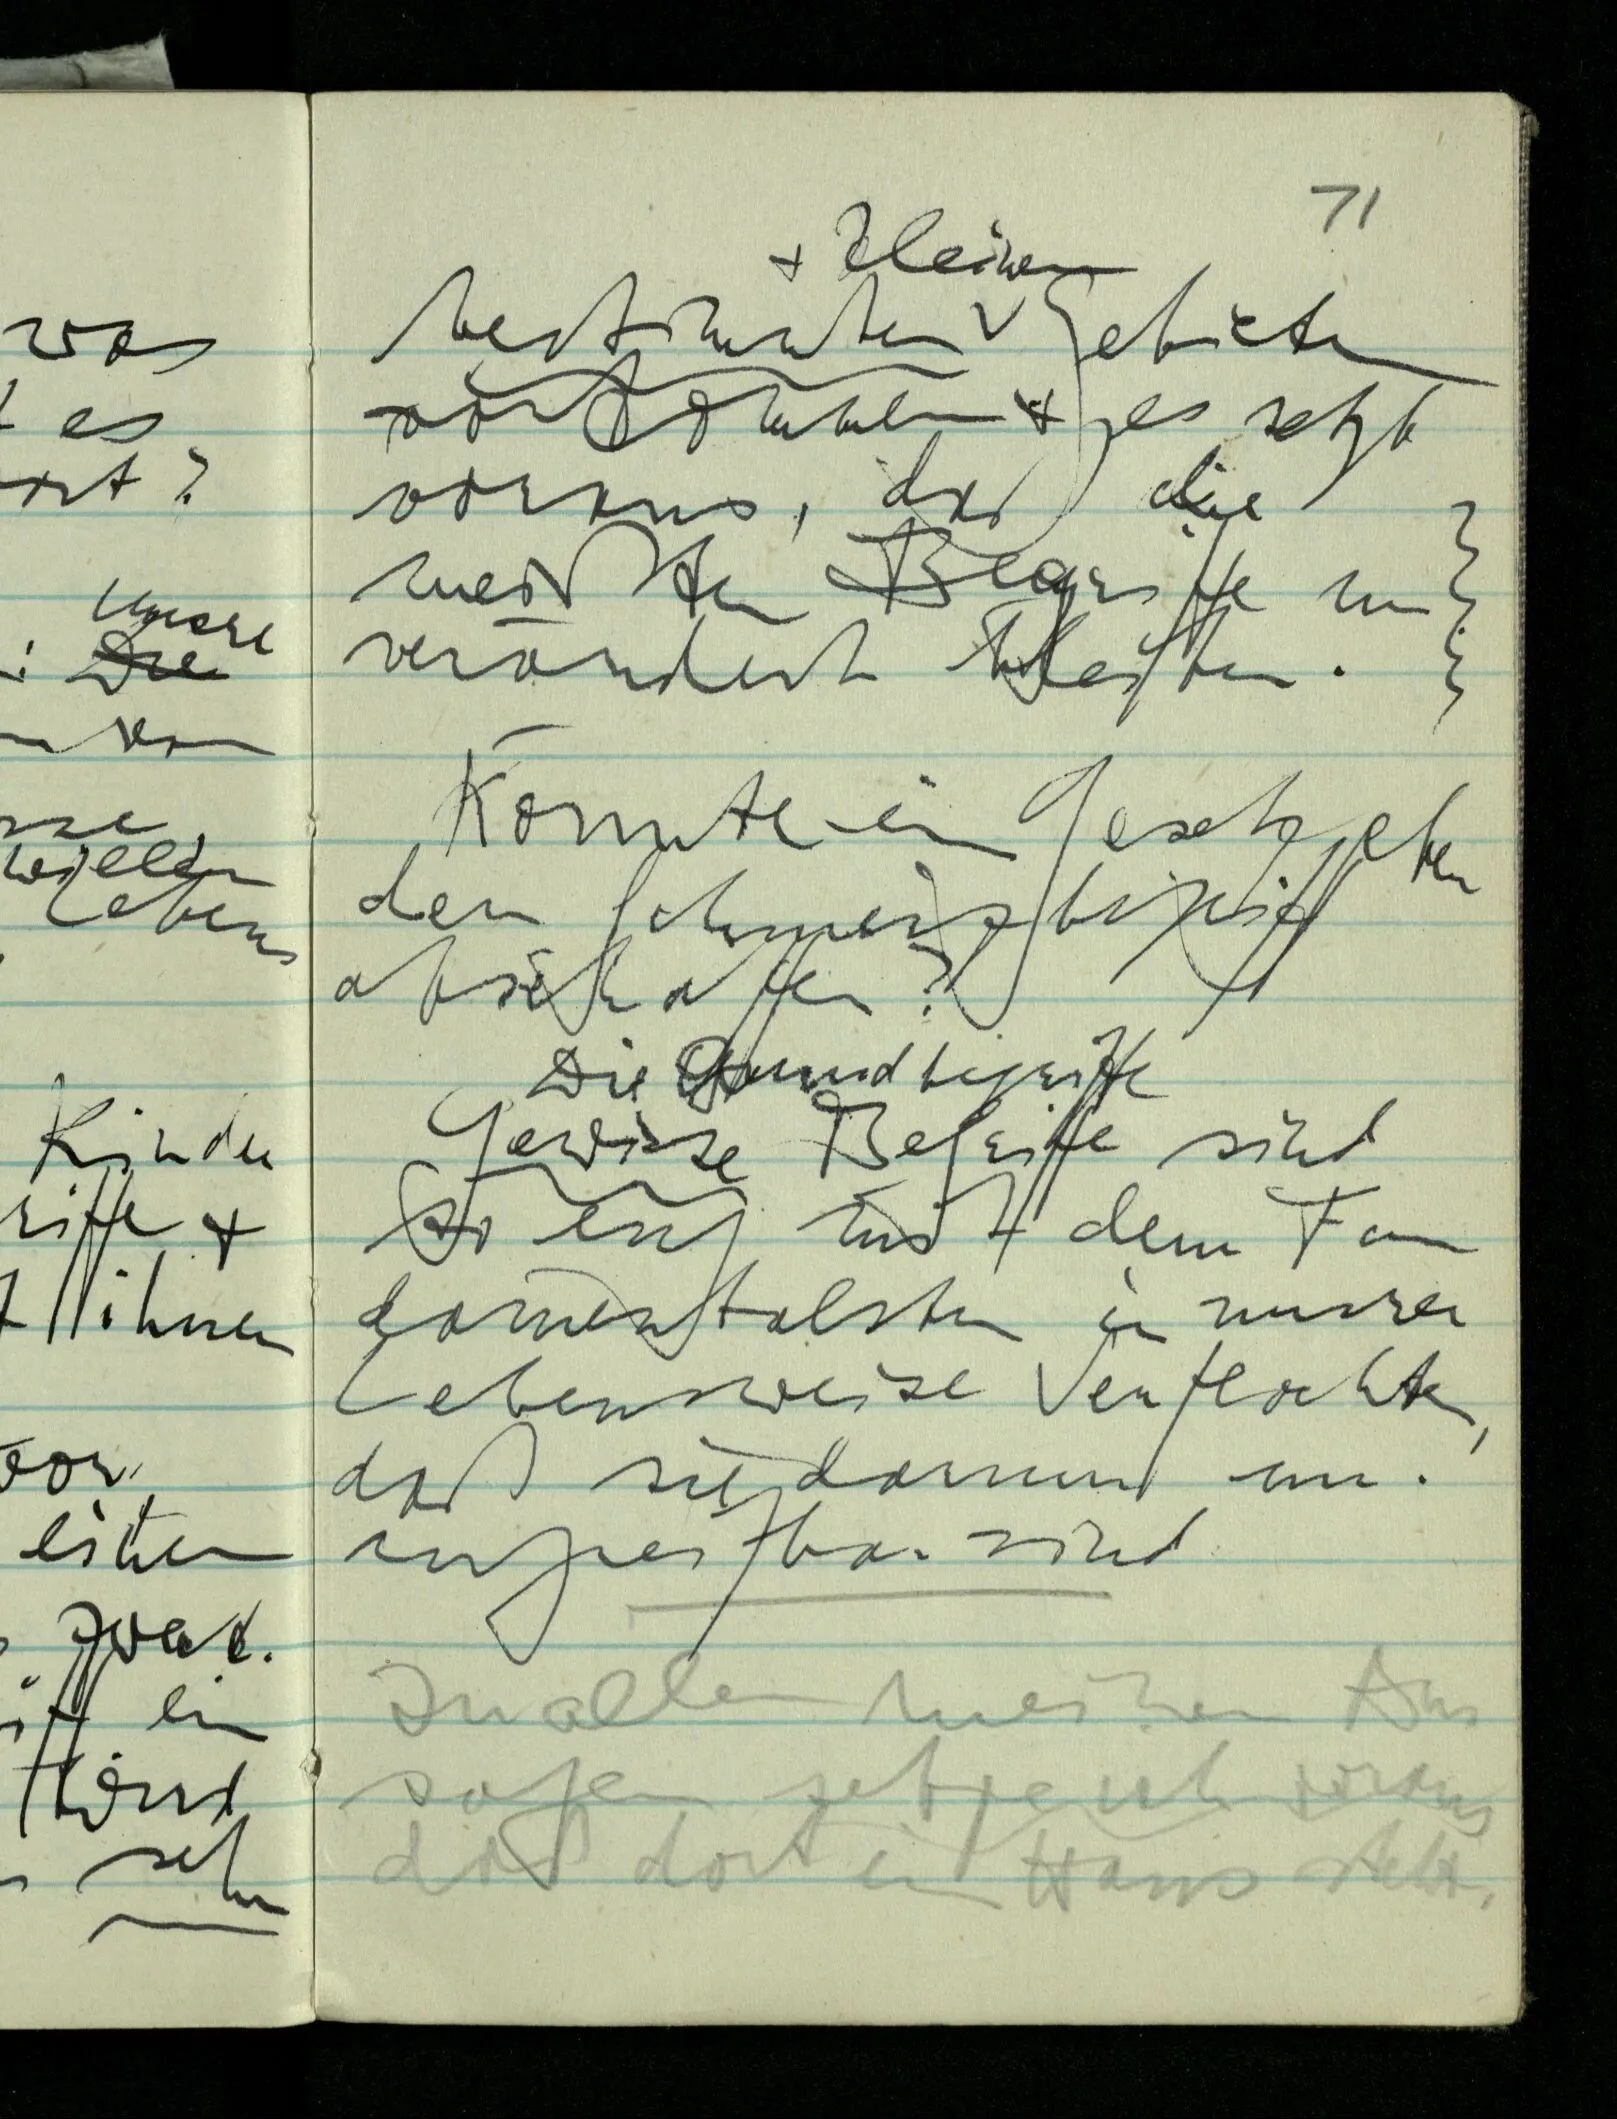 was
es
?
unsere
Die
willen
Lebens
Kinder
&
ihnen
Zweck.
ein
sehr
71
& kleinen
bestimmten Gebieten
vorkommen & es setzt
voraus, daß die
meisten Begriffe un
verändert bleiben.
Könnte ein Gesetzgeber
den Schmerzbegriff
abschaffen?
Die Grundbegriffe
Gewisse Begriffe sind
so eng mit dem Fun
damentalsten in unserer
Lebensweise verflochten,
daß sie darum un-
angreifbar sind
In allen meinen Aus
sagen setze ich voraus
daß dort ein Haus steht.